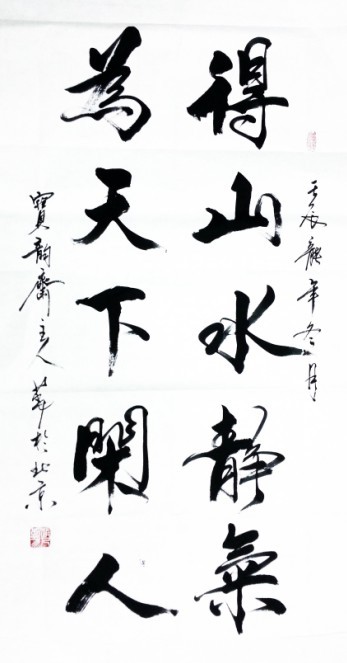 得山水靜氣
為天下閑人
壬辰龍年冬月
寶韵齋主人 於北京